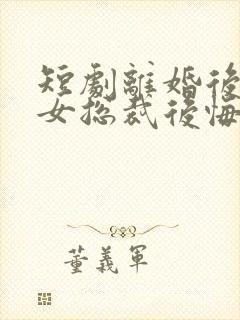 短劇離婚後
女總裁後悔
董義軍